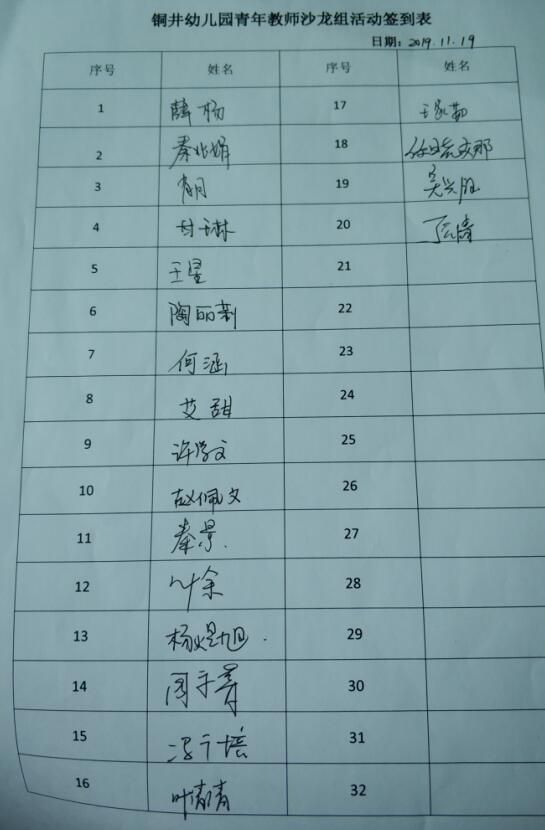 铜井幼儿园青年教师沙龙组活动签到表
日期：2019.11.19
序号 姓名 序号 姓名
1 薛杨 17
2 秦兆娟 18
3 19 吴兴胜
4 封千琳 20 丁云倩
5 王星 21
6 陶丽莉 22
7 何涵 23
8 艾甜 24
9 许学文 25
10 赵佩文 26
11 秦景. 27
12 叶余 28
13 杨煜旭. 29
14 周于菁 30
15 31
16 叶青青 32